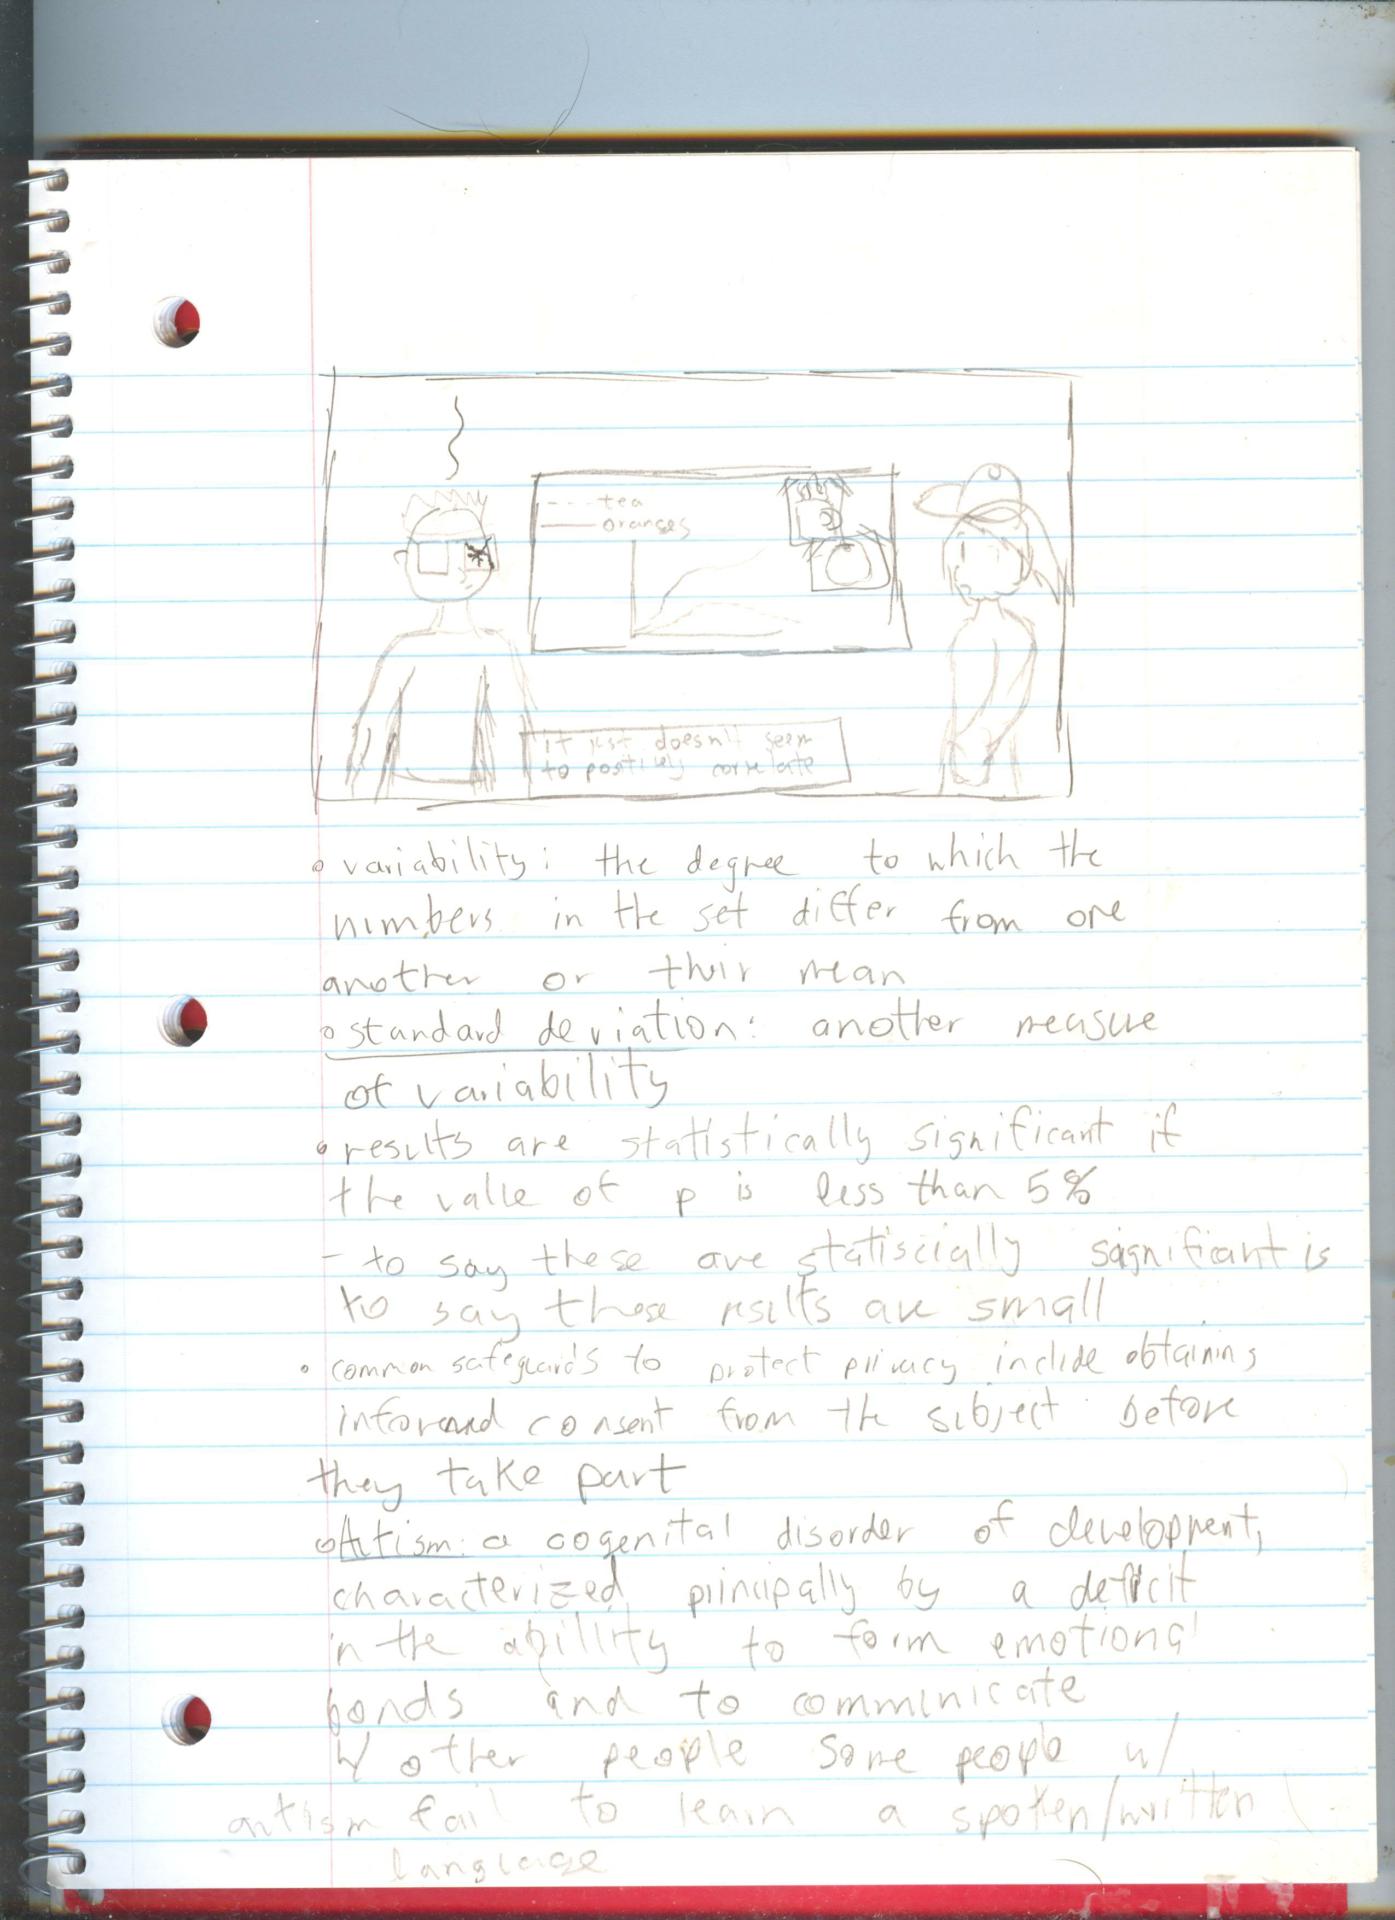 --- tea
— oranges
it just doesn't seem
to positively correlate
• variability: the degree to which the
numbers in the set differ from one
another or their mean
• standard deviation: another measure
of variability
• results are statistically significant if
the value of p is less than 5%
- to say these are statiscially significant is
to say these results are small
• common safeguards to protect privacy include obtaining
informed consent from the subject before
they take part
• Autism: a cogenital disorder of development,
characterized principally by a deficit
in the abillity to form emotional
bonds and to communicate
w/ other people some people w/
autism fail to learn a spoken/written
language